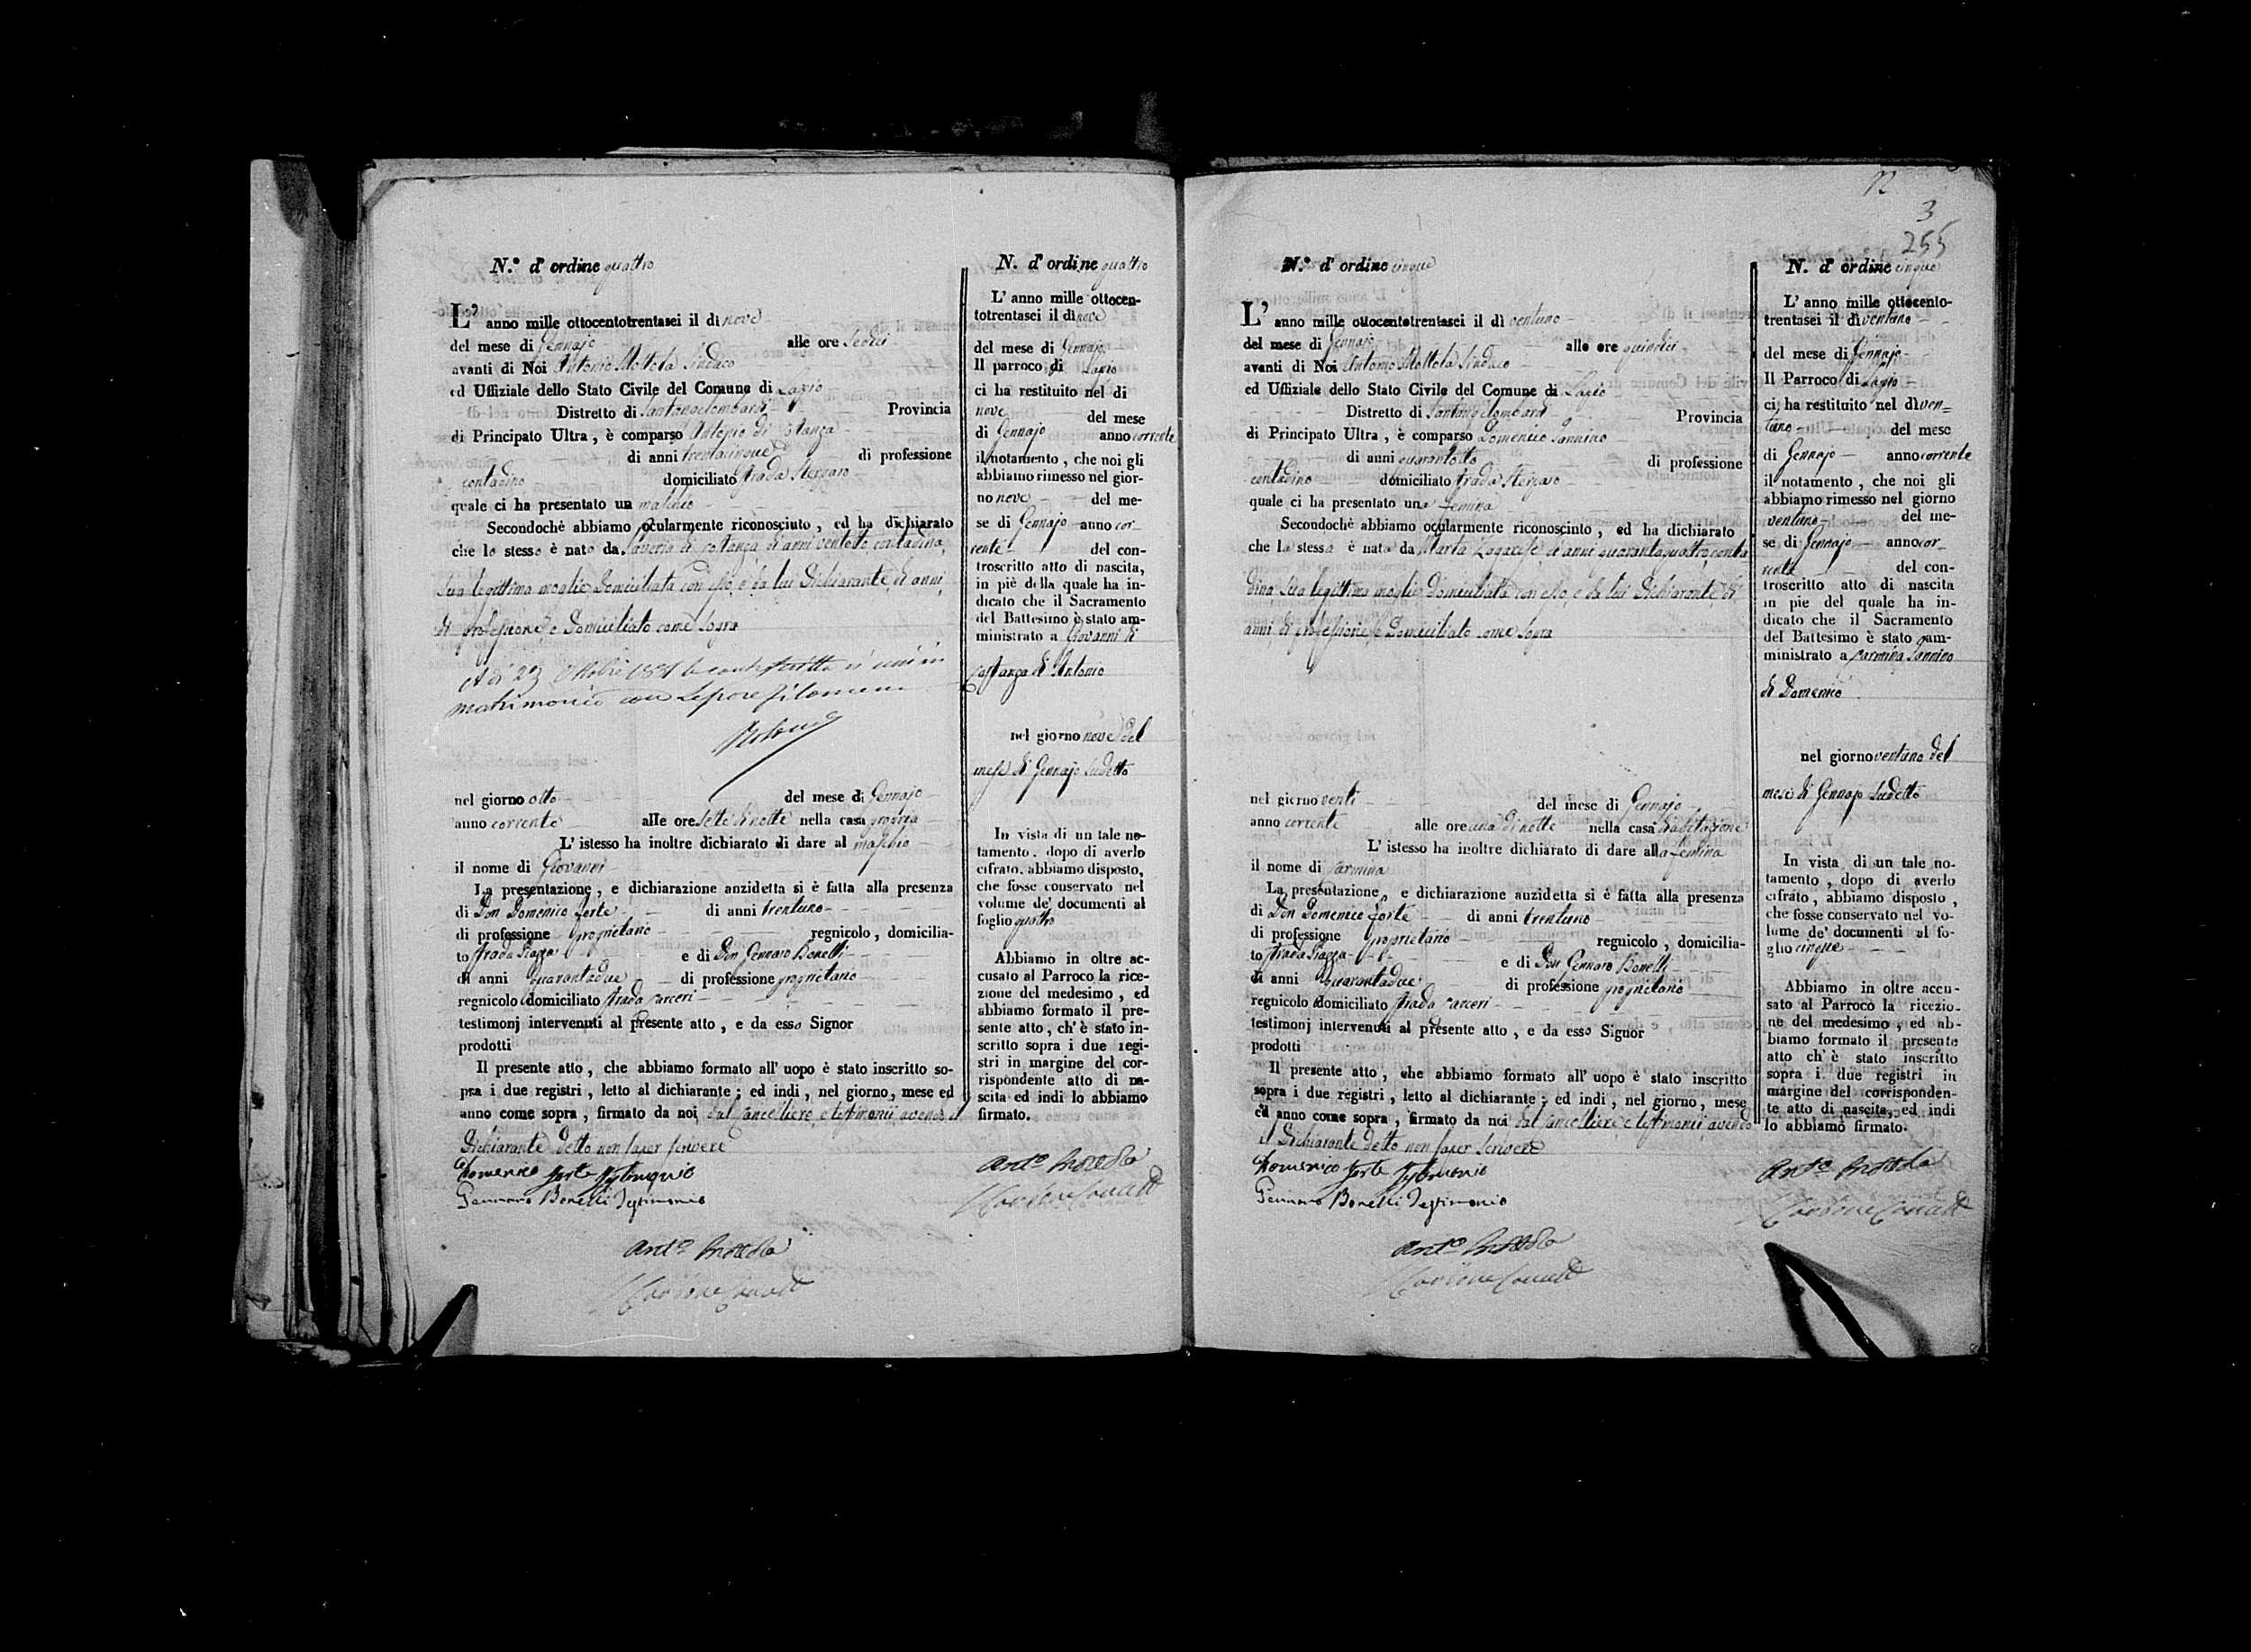 N.º d' ordine quattro
L' anno mille ottocentotrentasei il dì nove
del mese di Gennajo alle ore sedici
avanti di Noi Antonio Mottola Sindaco
ed Uffiziale dello Stato Civile del Comune di
Distretto di Santangelombardi Provincia
di Principato Ultra, è comparso Antonio di Costanza
di anni trentacinque di professione
contadino domiciliato strada
quale ci ha presentato un maschio
Secondochè abbiamo ocularmente riconosciuto, ed ha dichiarato
che lo stesso è nato da Saveria di Costanza di anni ventotto contadina,
sua legittima moglie domiciliata con esso, e da lui dichiarante, di anni,
di professione e domiciliato come sopra
A dì 23 Ottobre il contoscritto si unì in
matrimonio con Lepore Filomena
nel giorno otto del mese di Gennajo
anno corrente alle ore sette di notte nella casa propria
L' istesso ha inoltre dichiarato di dare al maschio
il nome di Giovanni
La presentazione, e dichiarazione anzidetta si è fatta alla presenza
di Don Domenico Forte di anni trentuno
di professione proprietario regnicolo, domicilia-
to strada Piazza e di Don Gennaro Bonelli
di anni quarantadue di professione proprietario
regnicolo domiciliato strada Carceri
testimonj intervenuti al presente atto, e da esso Signor
prodotti
Il presente atto, che abbiamo formato all' uopo è stato inscritto so-
pra i due registri, letto al dichiarante; ed indi, nel giorno, mese ed
anno come sopra, firmato da noi, dal Cancelliere, e testimonii avendo il
Dichiarante detto non saper scrivere
Domenico Forte Testimonio
Gennaro Bonelli Testimonio
Ant.º Mottola
N. d' ordine quattro
L' anno mille ottocen-
totrentasei il dì nove
del mese di Gennajo
Il parroco di
ci ha restituito nel di
nove del mese
di Gennajo anno corrente
il notamento, che noi gli
abbiamo rimesso nel gior-
no nove del me-
se di Gennajo anno cor-
rente del con-
troscritto atto di nascita,
in piè della quale ha in-
dicato che il Sacramento
del Battesimo è stato am-
ministrato a Giovanni di
Costanza di Antonio
nel giorno nove del
mese di Gennajo sudetto
In vista di un tale no-
tamento. dopo di averlo
cifrato. abbiamo disposto,
che fosse conservato nel
volume de' documenti al
foglio quattro
Abbiamo in oltre ac-
cusato al Parroco la rice-
zione del medesimo, ed
abbiamo formato il pre-
sente atto, ch' è stato in-
scritto sopra i due regi-
stri in margine del cor-
rispondente atto di na-
scita ed indi lo abbiamo
firmato.
Ant.º Mottola
3
255
N.º d' ordine cinque
L' anno mille ottocentotrentasei il dì ventuno
del mese di Gennajo alle ore quindici
avanti di Noi Antonio Mottola Sindaco
ed Uffiziale dello Stato Civile del Comune di
Distretto di Santangelombardi Provincia
di Principato Ultra, è comparso Domenico Iannino
di anni quarantotto di professione
contadino domiciliato strada
quale ci ha presentato una femina
Secondochè abbiamo ocularmente riconosciuto, ed ha dichiarato
che la stessa è nata da Marta di anni quarantaquattro, conta
dina sua legittima moglie domiciliata con esso, e da lui dichiarante, di
anni, di professione, e domiciliato come sopra
nel giorno venti del mese di Gennajo
anno corrente alle ore una di notte nella casa d'abitazione
L' istesso ha inoltre dichiarato di dare alla femina
il nome di Carmina
La presentazione, e dichiarazione anzidetta si è fatta alla presenza
di Don Domenico Forte di anni trentuno
di professione proprietario regnicolo, domicilia-
to strada Piazza e di Don Gennaro Bonelli
di anni quarantadue di professione proprietario
regnicolo domiciliato strada Carceri
testimonj intervenuti al presente atto, e da esso Signor
prodotti
Il presente atto, che abbiamo formato all' uopo è stato inscritto
sopra i due registri, letto al dichiarante; ed indi, nel giorno, mese
ed anno come sopra, firmato da noi dal Cancelliere, e testimonii, avendo
il Dichiarante detto non saper scrivere
Domenico Forte Testimonio
Gennaro Bonelli Testimonio
Ant.º Mottola
N. d' ordine cinque
L' anno mille ottocento-
trentasei il dì ventuno
del mese di Gennajo
Il Parroco di
ci ha restituito nel dì ven=
tuno del mese
di Gennajo anno corrente
il notamento, che noi gli
abbiamo rimesso nel giorno
ventuno del me-
se di Gennajo anno cor-
rente del con-
troscritto atto di nascita
in pie del quale ha in-
dicato che il Sacramento
del Battesimo è stato am-
ministrato a Carmina Iannino
di Domenico
nel giorno ventuno del
mese di Gennajo sudetto
In vista di un tale no-
tamento, dopo di averlo
cifrato, abbiamo disposto,
che fosse conservato nel vo-
lume de' documenti al fo-
glio cinque
Abbiamo in oltre accu-
sato al Parroco la ricezio-
ne del medesimo, ed ab-
biamo formato il presente
atto ch' è stato inscritto
sopra i due registri in
margine del corrisponden-
te atto di nascita, ed indi
lo abbiamo firmato.
Ant.º Mottola